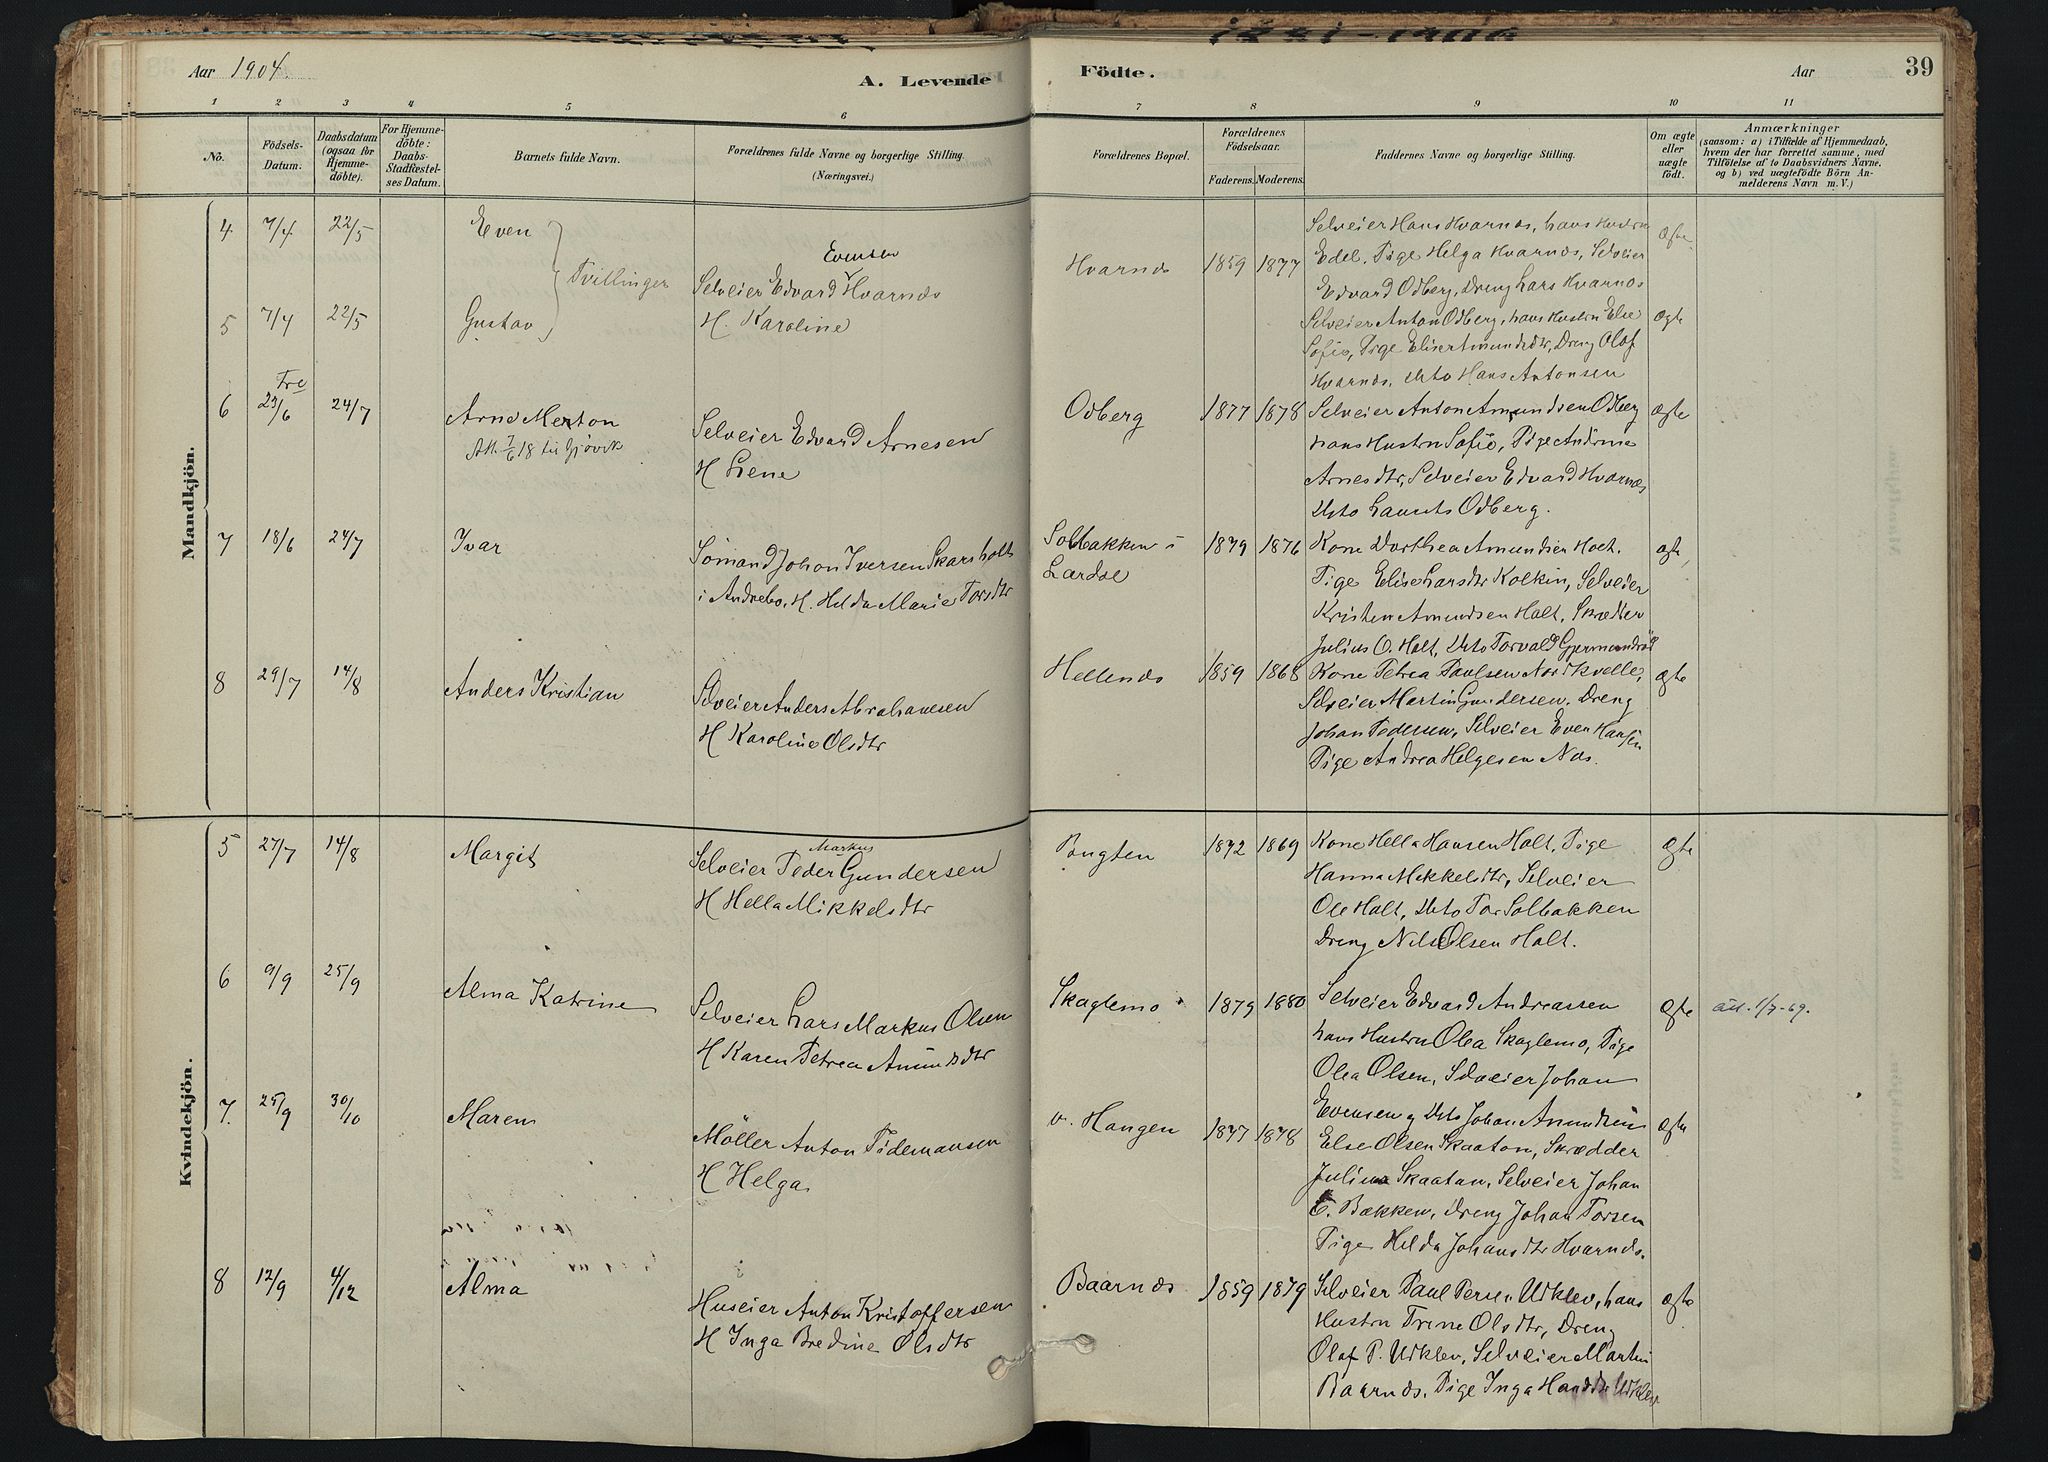 Aar 1904.
A. Levende
Födte.
Aar
39
1 2 3 4 5 6 7 8 9 10 11
No.
Födsels-Datum.
Daabsdatum (ogsaa for Hjemme-döbte).
For Hjemme-döbte: Daabs-Stadfæstel-ses Datum.
Barnets fulde Navn.
Forældrenes fulde Navne og borgerlige Stilling.
(Næringsvei.)
Forældrenes Bopæl.
Forældrenes Födselsaar.
Faderens. Moderens.
Faddernes Navne og borgerlige Stilling.
Om ægte eller uægte födt.
Anmærkninger
(saasom: a) i Tilfælde af Hjemmedaab,
hvem der har forrettet samme, med
Tilföielse af to Daabsvidners Navne,
og b) ved uægtefödte Börn An-
melderens Navn m. V.)
Mandkjön.
4 7/4 22/5 Even
Tvillinger
Evensen
Selveier Edvard Hvarnes
H. Karoline
Hvarnes 1859 1877
Selveier Hans Hvarnes, hans Hustru
Edel. Pige Helga Hvarnes, Selveier
Edvard Odberg, Dreng Lars Hvarnes
Ægte
5 7/4 22/5 Gustav
Selveier Anton Odberg, hans Hustru Else
Sofie, Pige Elise Amundsdtr, Dreng Olaf
Hvarnes, Dito Hans Antonsen
Ægte
6 Fre 23/6 24/7 Arne Merton
Att. 7/6 18 til Gjøvik
Selveier Edvard Arnesen
H Lene
Odberg 1877 1878
Selveier Anton Amundsen Odberg
hans Hustru Sofie, Pige Andrine
Arnesdtr, Selveier Edvard Hvarnes
Dito Laurits Odberg.
Ægte
7 18/6 24/7 Ivar
Sømand Johan Iversen Skarsholt
i Andebo, H. Helda Marie Torsdtr
Solbakken i
Lardal
1879 1876
Kone Dorthea Amundsen Holt.
Pige Elise Larsdtr Kolkin, Selveier
Kristen Amundsen Holt, Skrædder
Julius O. Holt, Dito Torvald Gjermundrød
ægte
8 29/7 14/8 Anders Kristian
Selveier Anders Abrahamsen
H Karoline Olsdtr
Hellenes 1859 1868
Kone Petrea Paulsen Nordkvelle,
Selveier Martin Gundersen. Dreng
Johan Pedersen, Selveier Even Hansen
Pige Andrea Helgesen Nes.
Ægte
Kvindekjön.
5 27/7 14/8 Margit
Markus
Selveier Peder Gundersen
H Hella Mikkelsdtr
Bugten 1872 1869
Kone Hella Hansen Holt, Pige
Hanna Mikkelsdtr, Selveier
Ole Holt, Dito Tor Solbakken
Dreng Nils Olsen Holt.
Ægte
6 9/9 25/9 Alma Katrine
Selveier Lars Markus Olsen
H Karen Petrea Amundsdtr
Skaglemo 1879 1880
Selveier Edvard Andreassen
hans Hustru Olea Skaglemo, Pige
Olea Olsen, Selveier Johan
Evensen og Dito Johan Amundsen
Ægte
att. 1/7-69.
7. 25/9 30/10 Maren
Møller Anton Tidemansen
H Helga
v. Haugen 1877 1878
Else Olsen Skaatan, Skrædder
Julius Skaatan, Selveier Johan
E. Bakken, Dreng Johan Torsen
Pige Helda Johansdtr Hvarnes.
Ægte
8 12/9 4/12 Alma
Huseier Anton Kristoffersen
H Inga Bredine Olsdtr
Baarnes 1859 1879
Selveier Paul Persen Udklev, hans
Hustru Trine Olsdtr, Dreng
Olaf P. Udklev, Selveier Martin
Baarnes, Pige Inga Hansdtr Udklev
Ægte